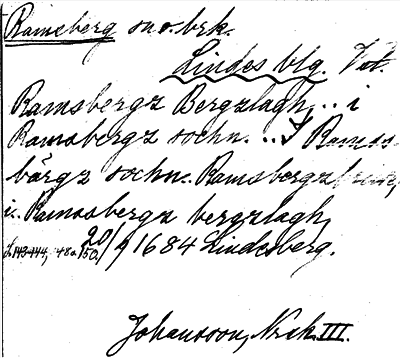 Ramsberg sn o. brk.
Lindes blg. Vstm.
Ramsbergz Bergzlagh, .. i
Ramsbergz sochn. .. I Ramss-
bärgz sochn. Ramsbergz
i Ramssbergz bergzlagh,
20/9 1684 Lindesberg.
Johansson, Nrck. III.